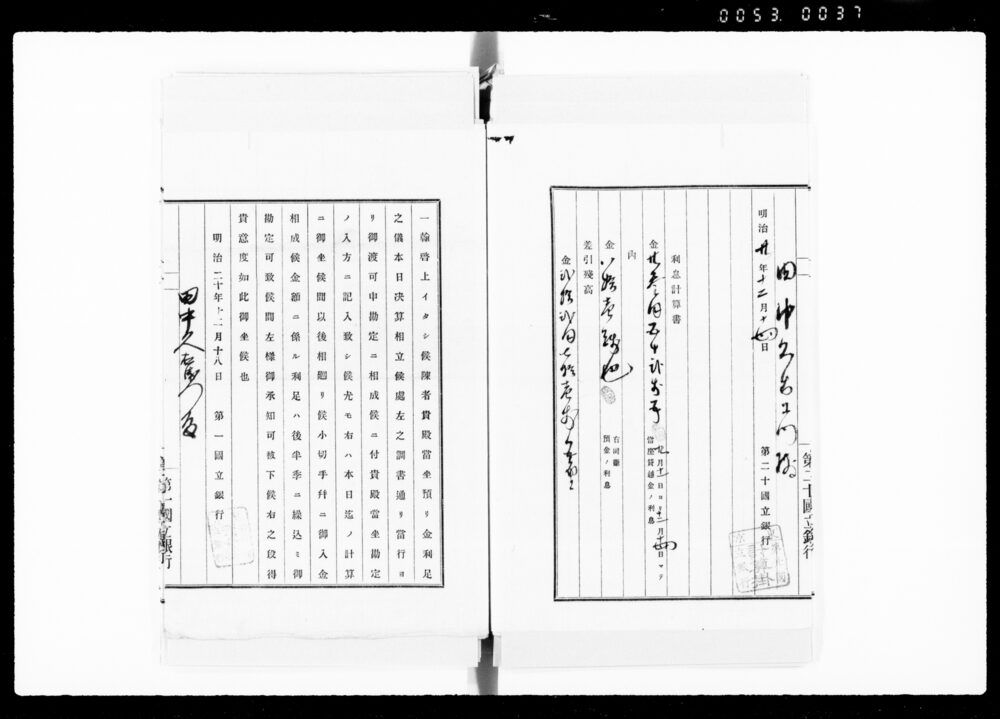 0053. 0037
利息計算書
金廿参円五十弐銭五厘
廿月十一日ヨリ十二月十四日マテ
當座貸越金ノ利息
内
金八拾壱銭也
右同斷
預金ノ利息
差引殘高
金弐拾弐円七拾壱銭五厘
明治廿年十二月十四日
第二十國立銀行
田中久右エ門殿
第二十國立銀行
一翰啓上イタシ候陳者貴殿當坐預リ金利足
之儀本日决算相立候處左之調書通リ當行ヨ
リ御渡可申勘定ニ相成候ニ付貴殿當坐勘定
ノ入方ニ記入致シ候尤モ右ハ本日迄ノ計算
ニ御坐候間以後相廻リ候小切手幷ニ御入金
相成候金額ニ係ル利足ハ後半季ニ繰込ミ御
勘定可致候間左樣御承知可被下候右之段得
貴意度如此御坐候也
明治二十年十二月十八日 第一國立銀行
田中久右衛門殿
第一國立銀行